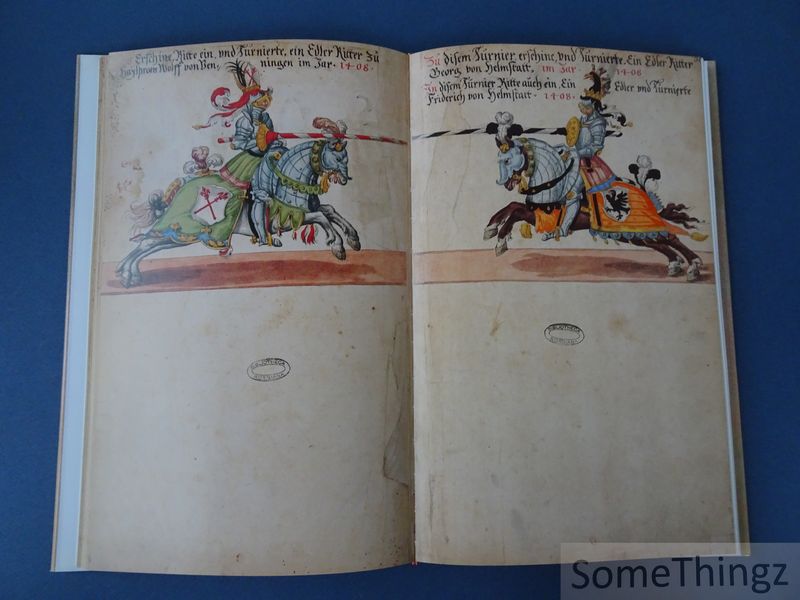 Erschine, Ritte ein, vnd Turnierte, ein Edler Ritter Zů
Wolff von Ben, ningen im Jar. 1408.
Zů disem Turnier erschine, vnd Turnierte. Ein Edler Ritter
Georg von Helmstatt, im Jar 1408
In disem Turnier Ritte auch ein. Ein Edler vnd Turnierte
Friderich von Helmstatt. 1408.
BIBLIOTHECA
BIBLIOTHECA
SomeThingz